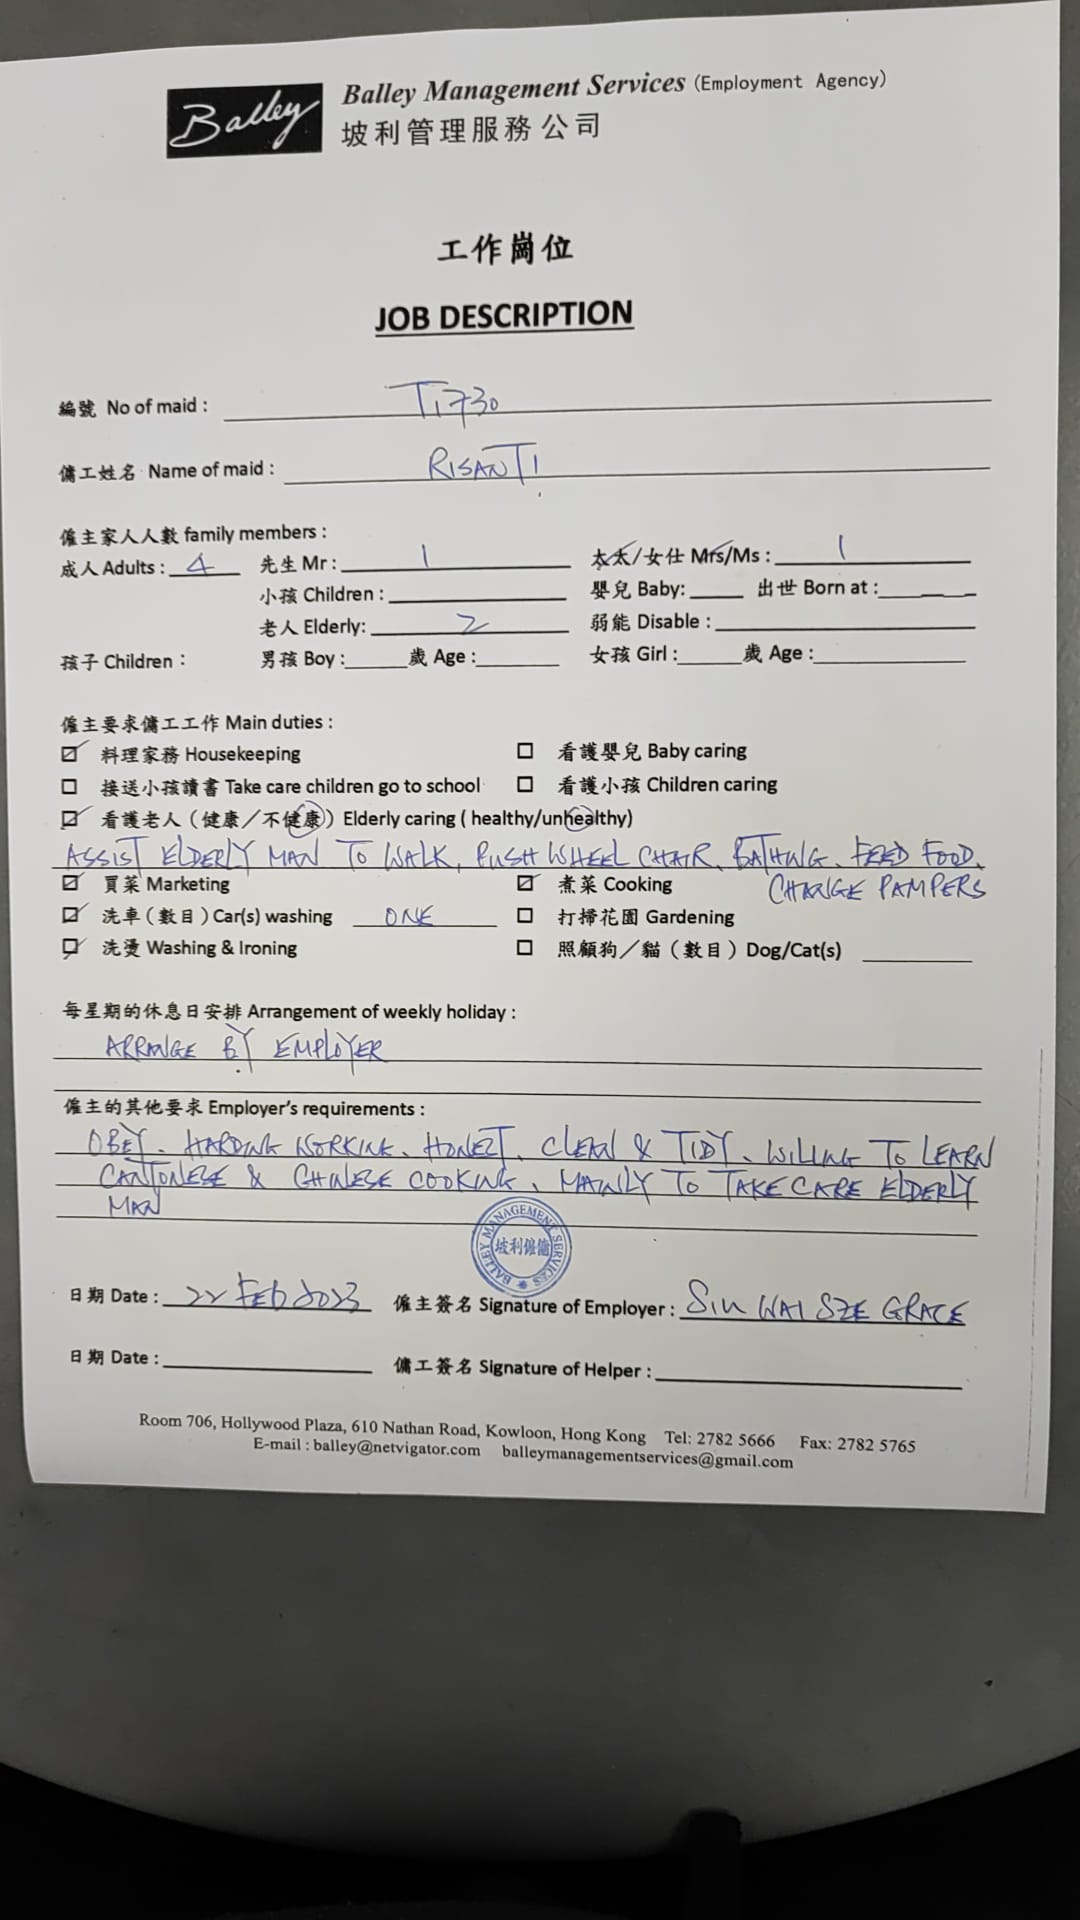 Balley
Balley Management Services (Employment Agency)
坡利管理服務公司
工作崗位
JOB DESCRIPTION
編號 No of maid : Ti730
傭工姓名 Name of maid : RISANTI
僱主家人人數 family members :
成人 Adults : 4 先生 Mr : 1 太太/女仕 Mrs/Ms : 1
小孩 Children : 嬰兒 Baby: 出世 Born at :
老人 Elderly: 2 弱能 Disable :
孩子 Children : 男孩 Boy : 歲 Age : 女孩 Girl : 歲 Age :
僱主要求傭工工作 Main duties :
☑ 料理家務 Housekeeping ☐ 看護嬰兒 Baby caring
☐ 接送小孩讀書 Take care children go to school ☐ 看護小孩 Children caring
☑ 看護老人（健康／不健康）Elderly caring ( healthy/unhealthy)
ASSIST ELDERLY MAN TO WALK, PUSH WHEEL CHAIR, BATHING, FEED FOOD,
CHANGE PAMPERS
☑ 買菜 Marketing ☑ 煮菜 Cooking
☑ 洗車（數目）Car(s) washing ONE ☐ 打掃花園 Gardening
☑ 洗燙 Washing & Ironing ☐ 照顧狗／貓（數目）Dog/Cat(s)
每星期的休息日安排 Arrangement of weekly holiday :
ARRANGE BY EMPLOYER
僱主的其他要求 Employer's requirements :
OBEY, HARDING WORKING, HONEST, CLEAN & TIDY, WILLING TO LEARN
CANTONESE & CHINESE COOKING, MAINLY TO TAKE CARE ELDERLY
MAN
BALLEY MANAGEMENT SERVICES
坡利僱傭
日期 Date : 22 FEB 2023 僱主簽名 Signature of Employer : SIU WAI SZE GRACE
日期 Date : 傭工簽名 Signature of Helper :
Room 706, Hollywood Plaza, 610 Nathan Road, Kowloon, Hong Kong Tel: 2782 5666 Fax: 2782 5765
E-mail : balley@netvigator.com balleymanagementservices@gmail.com